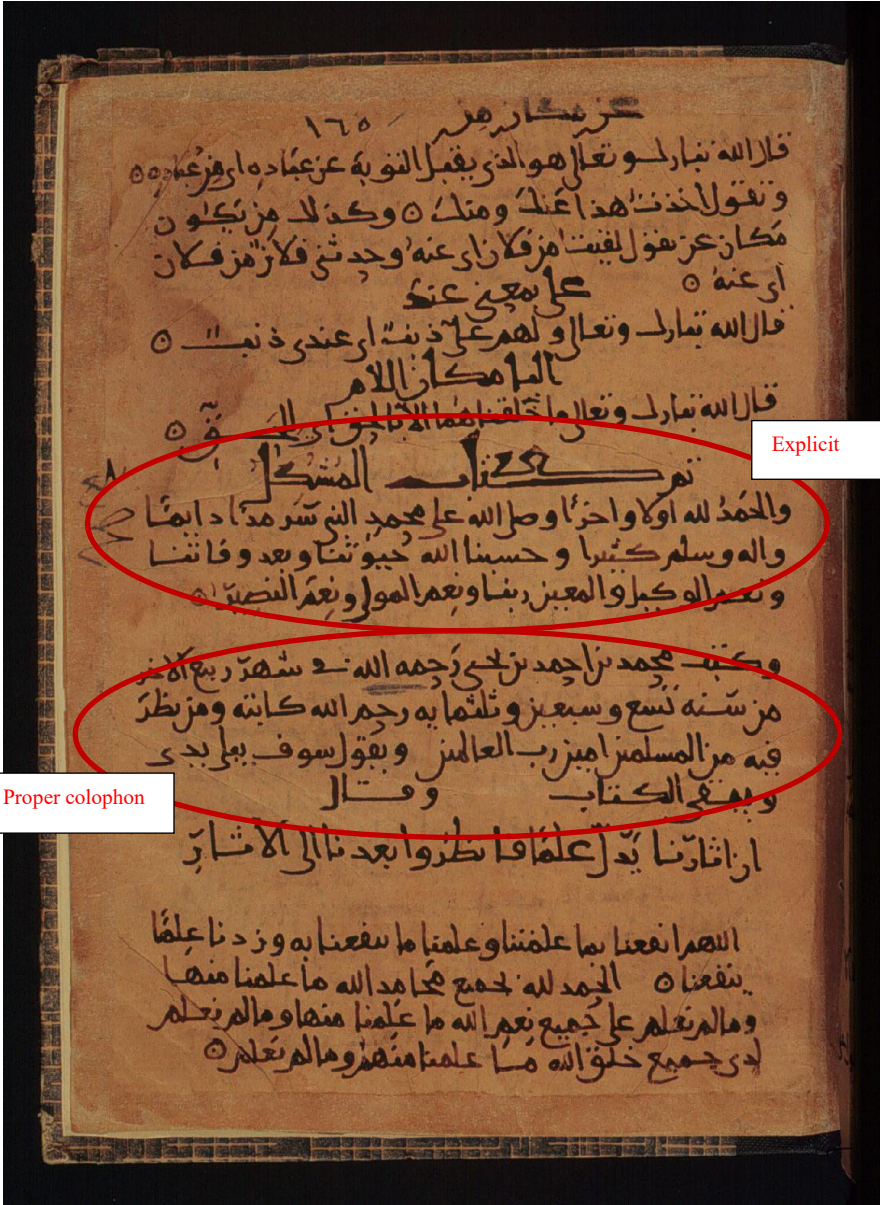 عن مكان من ١٦٥
قال الله تبارك وتعالى هو الذي يقبل التوبة عن عباده اي من عباده ٥٥
وتقول اخذت هذا عنك ومنك ٥ وكذلك من تكون
مكان عن تقول لقيت من فلان اي عنه وحدثني فلان من فلان
اي عنه ٥ على بمعنى عند
قال الله تبارك وتعالى ولهم علي ذنب اي عندي ذنب ٥
البا مكان اللام
قال الله تبارك وتعالى ما خلقناهما الا بالحق اي للحق ٥
Explicit
تم كتاب المشكل
والحمد لله اولا واخرا وصلى الله على محمد النبي سرمدا دايما
واله وسلم كثيرا وحسبنا الله حيوتنا وبعد وفاتنا
ونعم الوكيل والمعين ربنا ونعم المولى ونعم النصير
وكتب محمد بن احمد بن يحيى رحمه الله في شهر ربيع الاخر
من سنه تسع وسبعين وثلثمايه رحم الله كاتبه ومن نظر
فيه من المسلمين امين رب العالمين ويقول سوف يبلى يدي
Proper colophon
ويبقى الكتاب وقال
ان اثارنا تدل علينا فانظروا بعدنا الى الاثار
اللهم انفعنا بما علمتنا وعلمنا ما ينفعنا به وزدنا علما
ينفعنا ٥ الحمد لله بجميع محامد الله ما علمنا منها
ومالم نعلم على جميع نعم الله ما علمنا منها ومالم نعلم
لدى جميع خلق الله ما علمنا منهم ومالم نعلم ٥